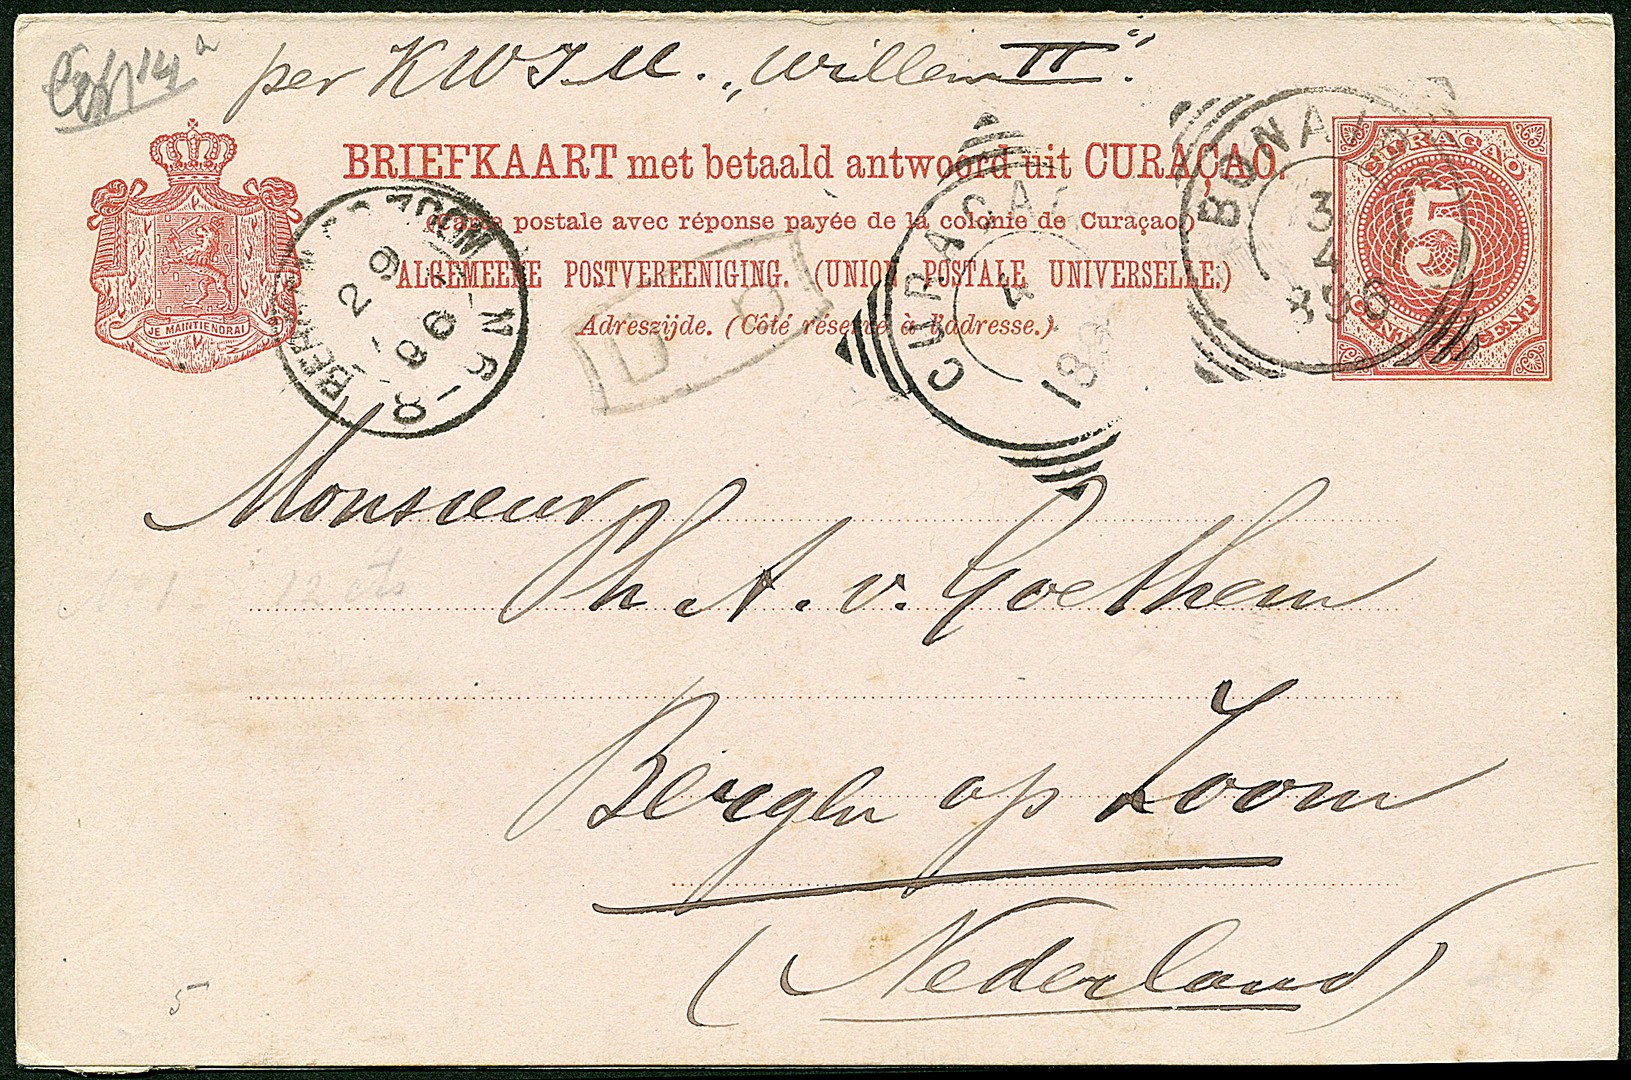 per KWIM. „Willem II".
BRIEFKAART met betaald antwoord uit CURAÇAO.
(Carte postale avec réponse payée de la colonie de Curaçao.)
ALGEMEENE POSTVEREENIGING. (UNION POSTALE UNIVERSELLE.)
Adreszijde. (Côté réservé à l'adresse.)
JE MAINTIENDRAI
CURAÇAO
5
CENT CENT
BONAIRE
3
4
896
CURAÇAO
4
189
BERGEN OP ZOOM
29
4
96
8-9N
Monsieur
Ph. A. v. Goethem
Bergen op Zoom
(Nederland)
12 cts
5